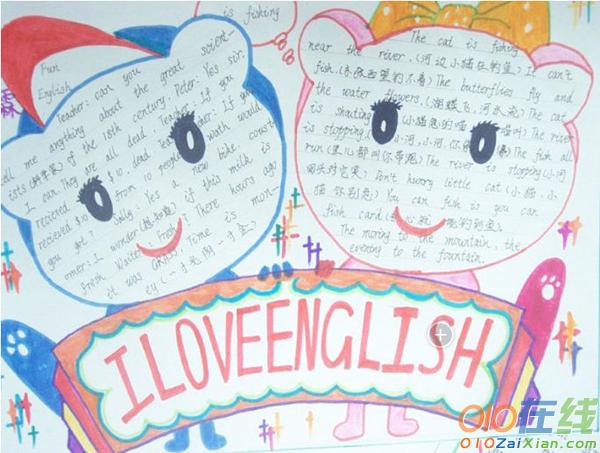 is fishing
Fun
English
Teacher: can you
tell me anything about the great scient-
ists (科学家) of the 18th century Peter: Yes sir.
I can. They are all dead. Teacher: If you
recieved $10 from 10 people. Teacher: If you
you get? Sally: Yes a new bike.
omer: I wonder if this milk is
fresh. Waiter: Fresh? Three hours ago
it was GRASS! Time is mon-
ey (一寸光阴一寸金)
The cat is fishing
near the river. (河边小猫在钓鱼) It can't
fish. (东张西望钓不着) The butterflies fly and
the water flowers. (蝴蝶飞, 河水流) The cat
is shouting (小猫急的喵喵叫) The river
is stopping. (小河, 小河, 你
The fish all
run (鱼儿都叫你带跑) The river is stopping (小河
回头对它笑) Don't hurry little cat (小猫小
猫你别急) You can fish is you can
fish card
The moring to the mountain, the
evening to the fountain.
I LOVE ENGLISH
OIO在线
OIOZaiXian.com